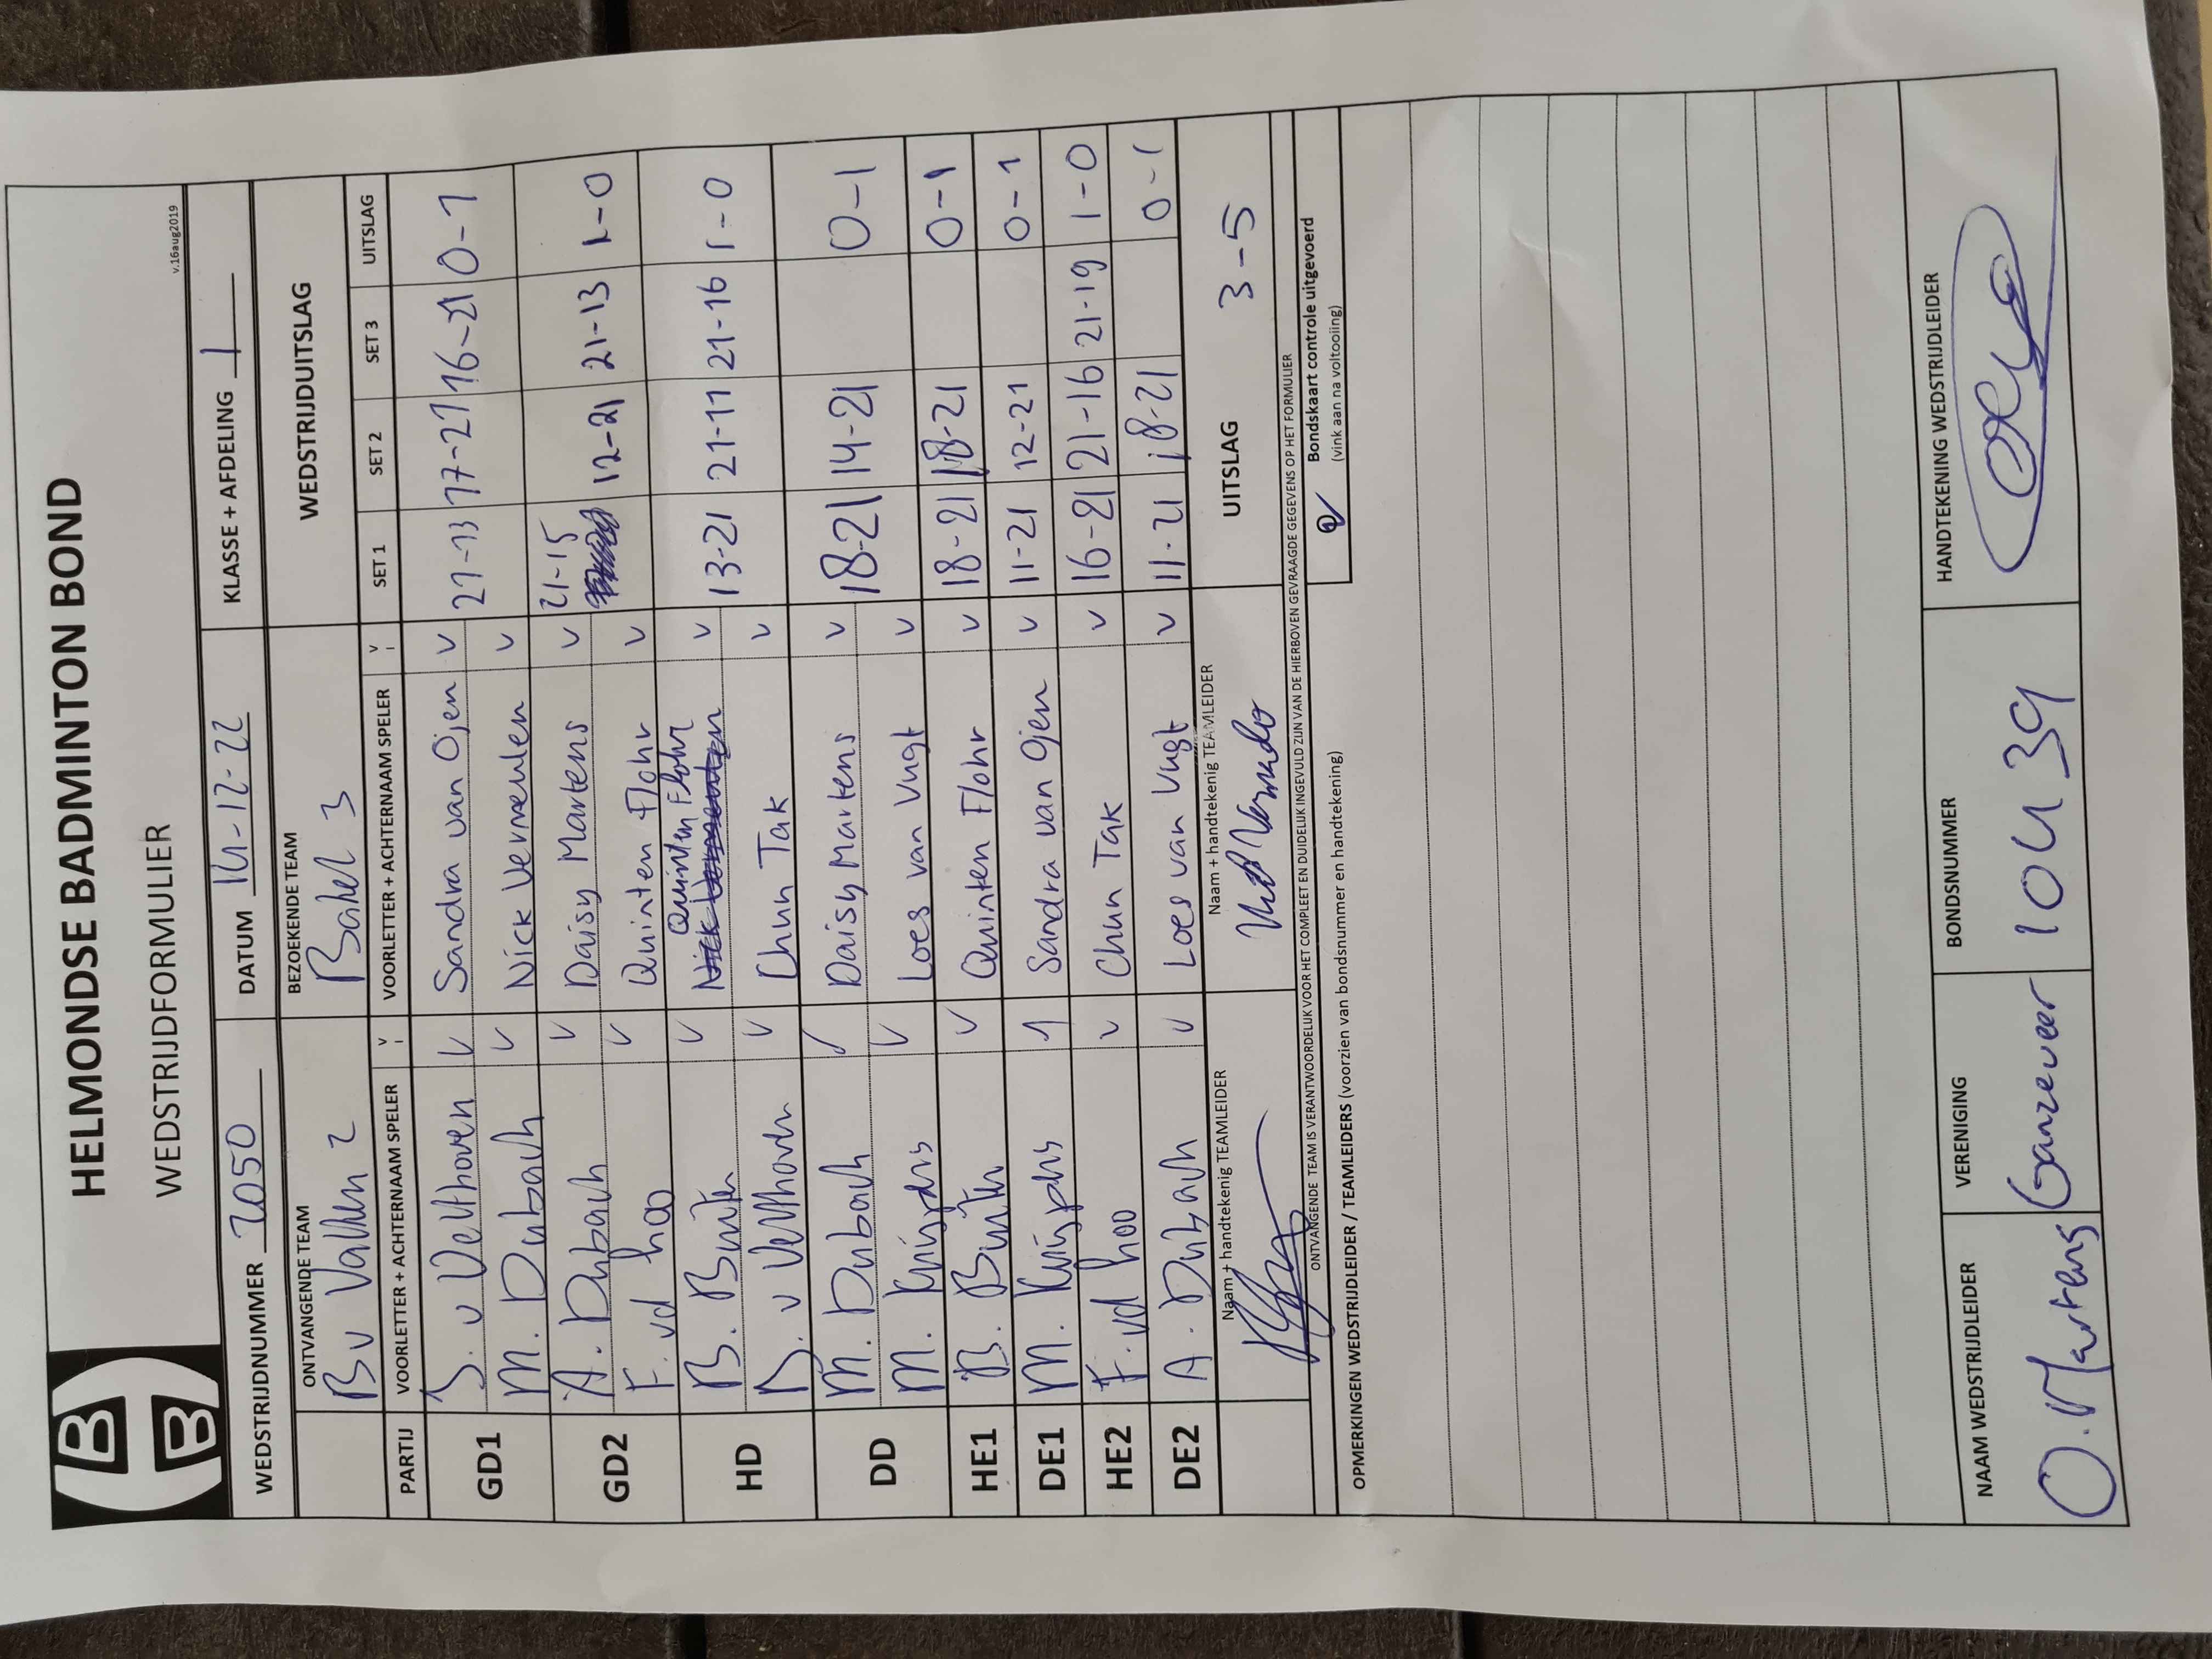 HELMONDSE BADMINTON BOND
WEDSTRIJDFORMULIER
v.16aug2019
WEDSTRIJDNUMMER 2050 DATUM 14-12-22 KLASSE + AFDELING 1
ONTVANGENDE TEAM BEZOEKENDE TEAM WEDSTRIJDUITSLAG
BV Valken 2 Bakel 3
PARTIJ VOORLETTER + ACHTERNAAM SPELER V VOORLETTER + ACHTERNAAM SPELER V SET 1 SET 2 SET 3 UITSLAG
GD1 v Velthoven v Sandra van Ojen v 21-13 17-21 16-21 0-1
M. Dubach v Nick Vermeulen v
GD2 A. Dubach v Daisy Martens v 21-15 12-21 21-13 1-0
F. vd hoo v Quinten Flohr v
HD B. Buiten v Quinten Flohr v 13-21 21-11 21-16 1-0
v Velthoven v Chun Tak v
DD M. Dubach v Daisy Martens v 18-21 14-21 0-1
M. Kuijpers v Loes van Vugt v
HE1 B. Buiten v Quinten Flohr v 18-21 18-21 0-1
DE1 M. Kuijpers 1 Sandra van Ojen v 11-21 12-21 0-1
HE2 F. vd hoo v Chun Tak v 16-21 21-16 21-19 1-0
DE2 A. Dubach v Loes van Vugt v 11-21 18-21 0-1
Naam + handtekenig TEAMLEIDER Naam + handtekenig TEAMLEIDER UITSLAG 3-5
ONTVANGENDE TEAM IS VERANTWOORDELIJK VOOR HET COMPLEET EN DUIDELIJK INGEVULD ZIJN VAN DE HIERBOVEN GEVRAAGDE GEGEVENS OP HET FORMULIER
Bondskaart controle uitgevoerd
(vink aan na voltooiing)
OPMERKINGEN WEDSTRIJDLEIDER / TEAMLEIDERS (voorzien van bondsnummer en handtekening)
NAAM WEDSTRIJDLEIDER VERENIGING BONDSNUMMER HANDTEKENING WEDSTRIJDLEIDER
O. Martens Ganzeveer 10439